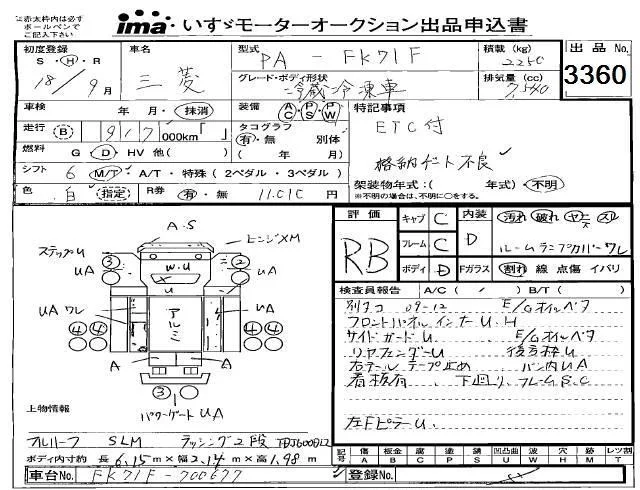 に赤太枠内は必ず
ボールペンで
ご記入下さい
ima いすゞモーターオークション出品申込書
初度登録 車名 型式 PA - FK71F 積載(kg) 2250 出品No.
S・H・R 18/9月 三菱 グレード・ボディ形状 冷蔵冷凍車 排気量(cc) 7,540 3360
車検 年・月・抹消 装備 AC・PS・PW 特記事項
走行 (B) 917 000km「 」 タコグラフ 有・無 別体 ETC付
燃料 G D・HV 他( ) ( 年 月) 格納ゲート不良
シフト 6 M/T A/T・特殊(2ペダル・3ペダル)
架装物年式:( 年式)・不明
色 白 指定 R券 有・無 11,010 円 ※不明の場合は、不明に○をする。
評価 RB キャブ C 内装 D 汚れ 破れ ヤニ スレ
フレーム C ルームランプカバーワレ
ボディ D Fガラス 割れ 線 点傷 イバリ
A.S
ステップU ヒンジXM
3 W.U 2
UA UA
U
UA ワレ アルミ UA
4 4 4 4
A A
3
パワーゲートUA
検査員報告 A/C( / ) B/T( )
別タコ 09-12 E/Gオイルベタ
フロントパネルインナーU.H
サイドガードU E/Gオイルベタ
リヤフェンダーU 後方枠U
右テールテープ止め バン内UA
看板有 下回り、フレームS.C
左FピラーU
上物情報
フルハーフ SLM ラッシング2段
ボディ内寸約 長 6,15 m × 幅 2,14 m × 高 1,98 m
記号 傷A 板金B 腐C 塗P 錆S 凹凸曲U 波W 穴H 跡M レツ割T
車台No. FK71F-700677 登録No.